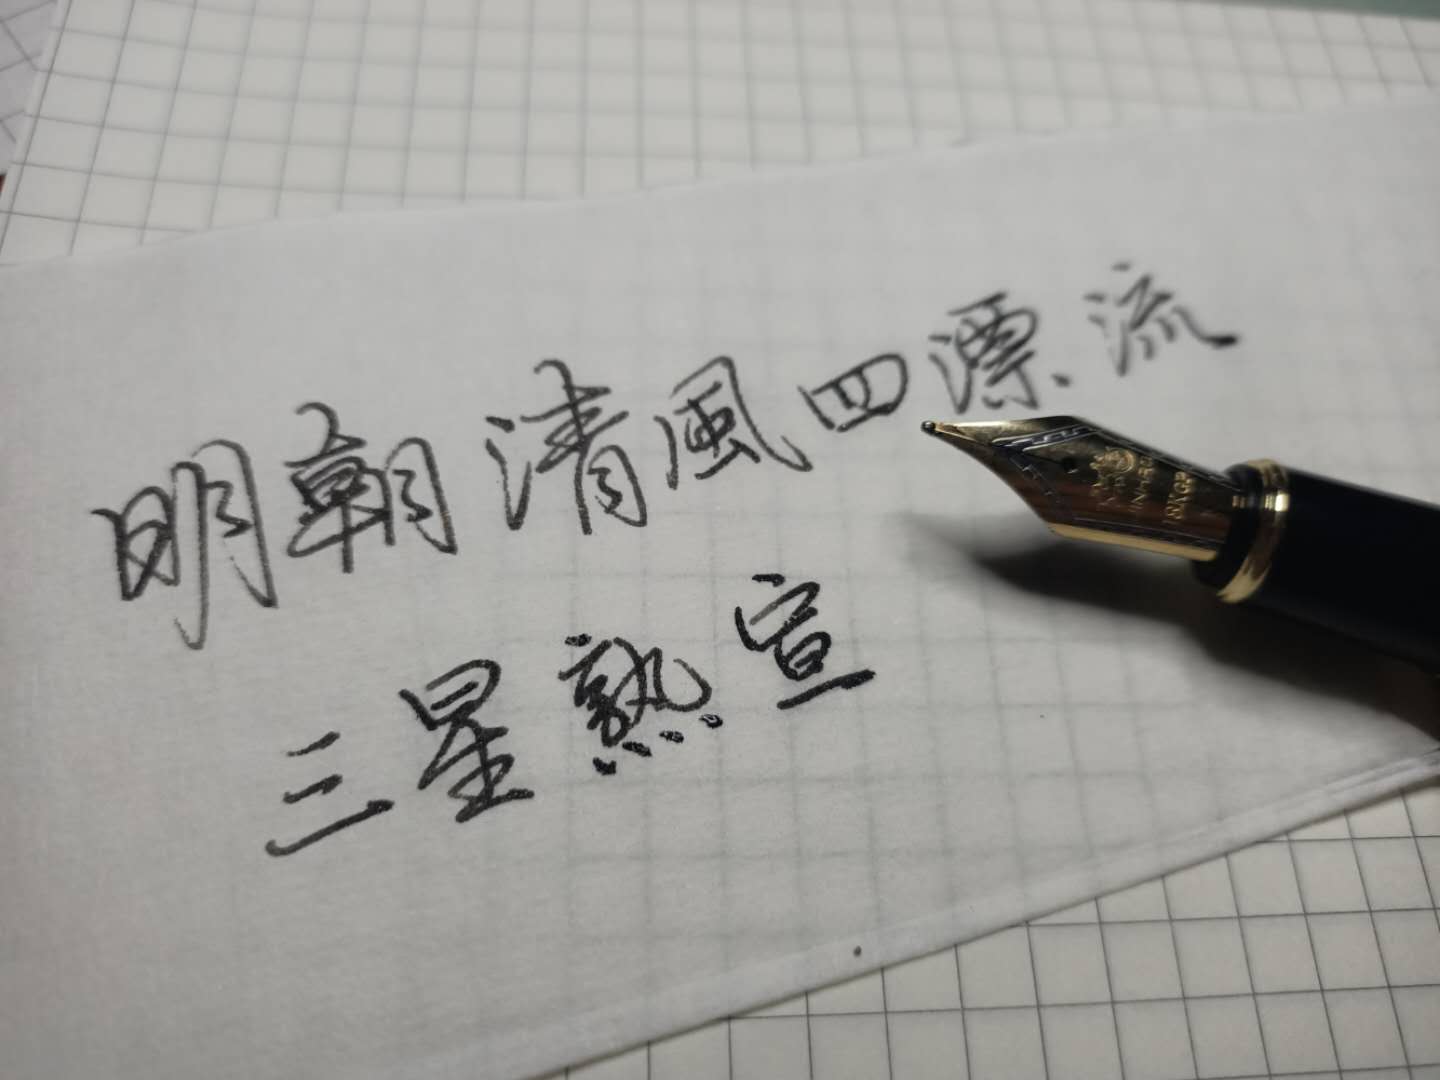 明朝清風四漂流
三星熟宣
18KGP